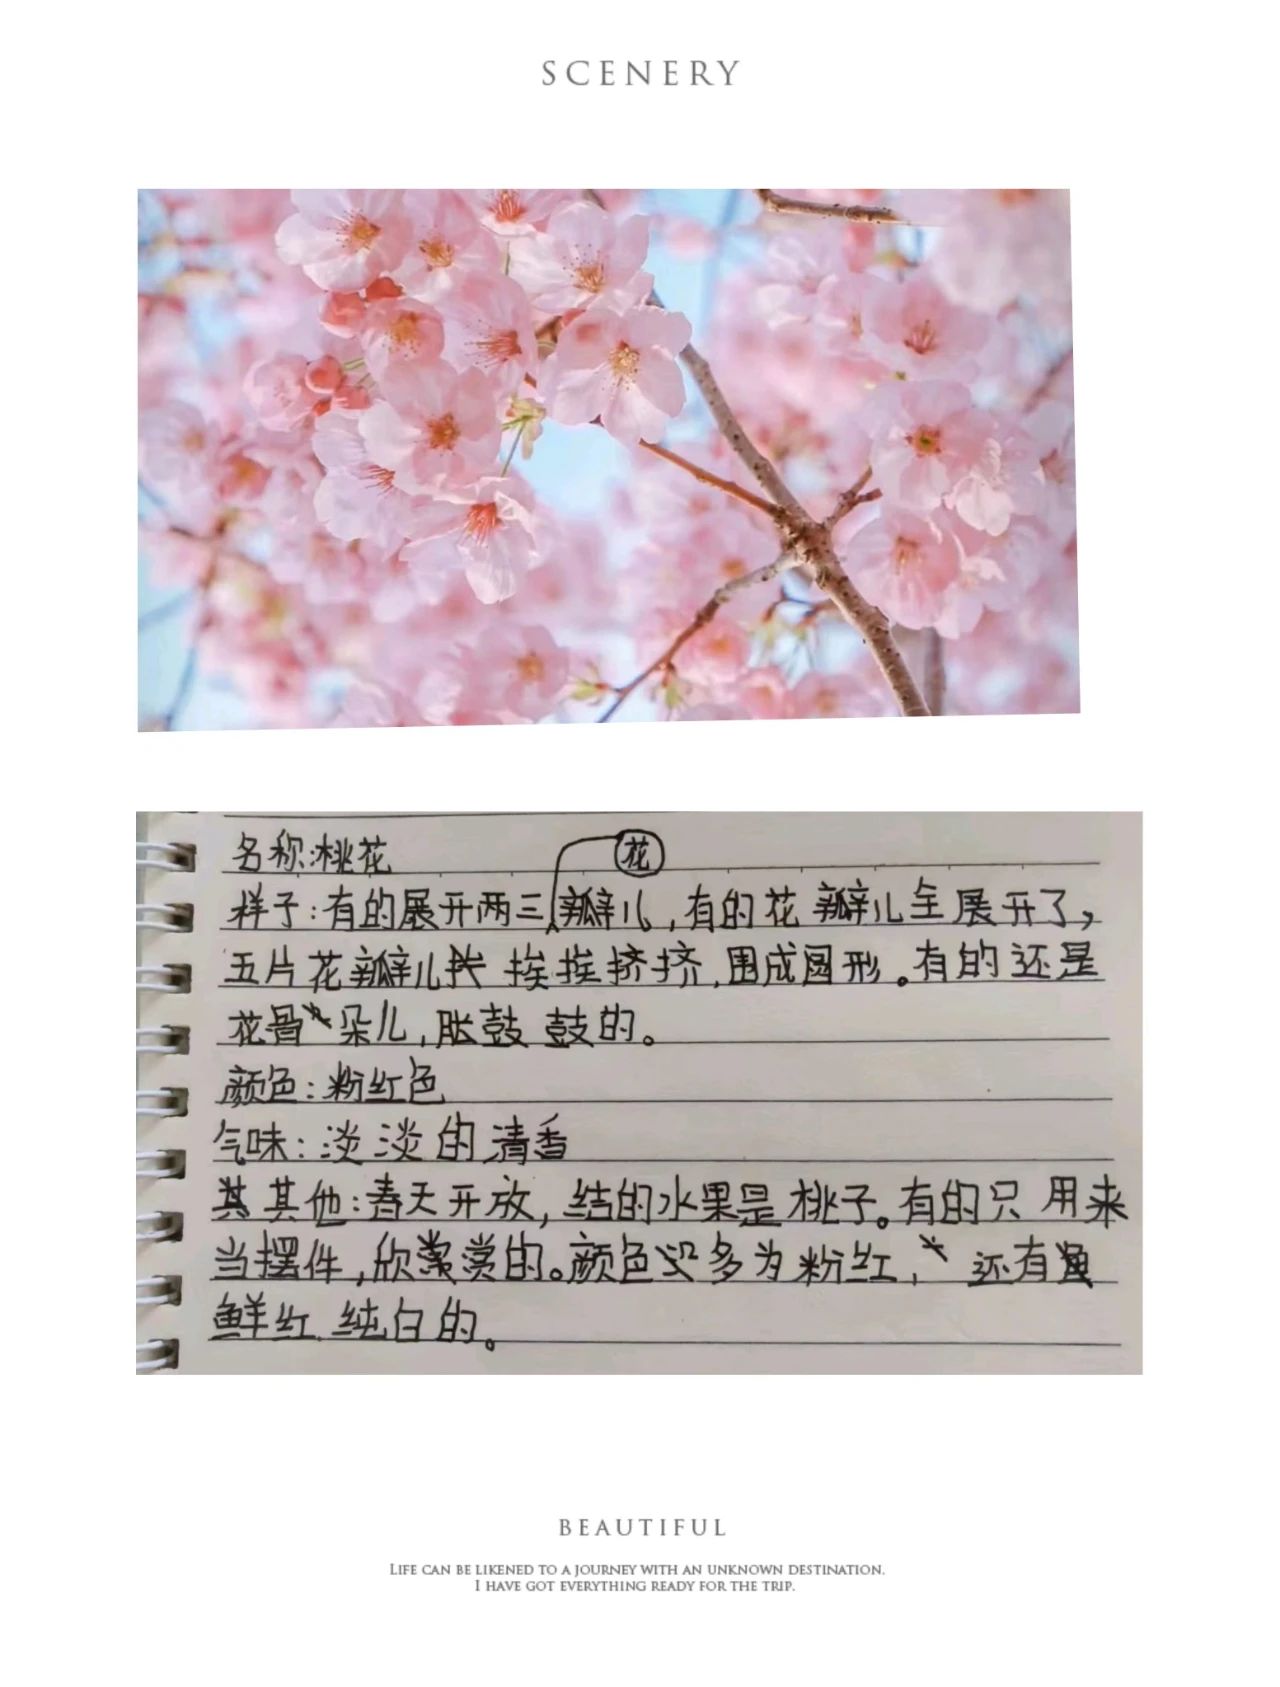 SCENERY
名称:桃花
样子:有的展开两三花瓣儿,有的花瓣儿全展开了,
五片花瓣儿挨挨挤挤,围成圆形。有的还是
花骨朵儿,胀鼓鼓的。
颜色:粉红色
气味:淡淡的清香
其他:春天开放,结的水果是桃子。有的只用来
当摆件,欣赏的。颜色多为粉红,还有
鲜红 纯白的。
BEAUTIFUL
LIFE CAN BE LIKENED TO A JOURNEY WITH AN UNKNOWN DESTINATION.
I HAVE GOT EVERYTHING READY FOR THE TRIP.